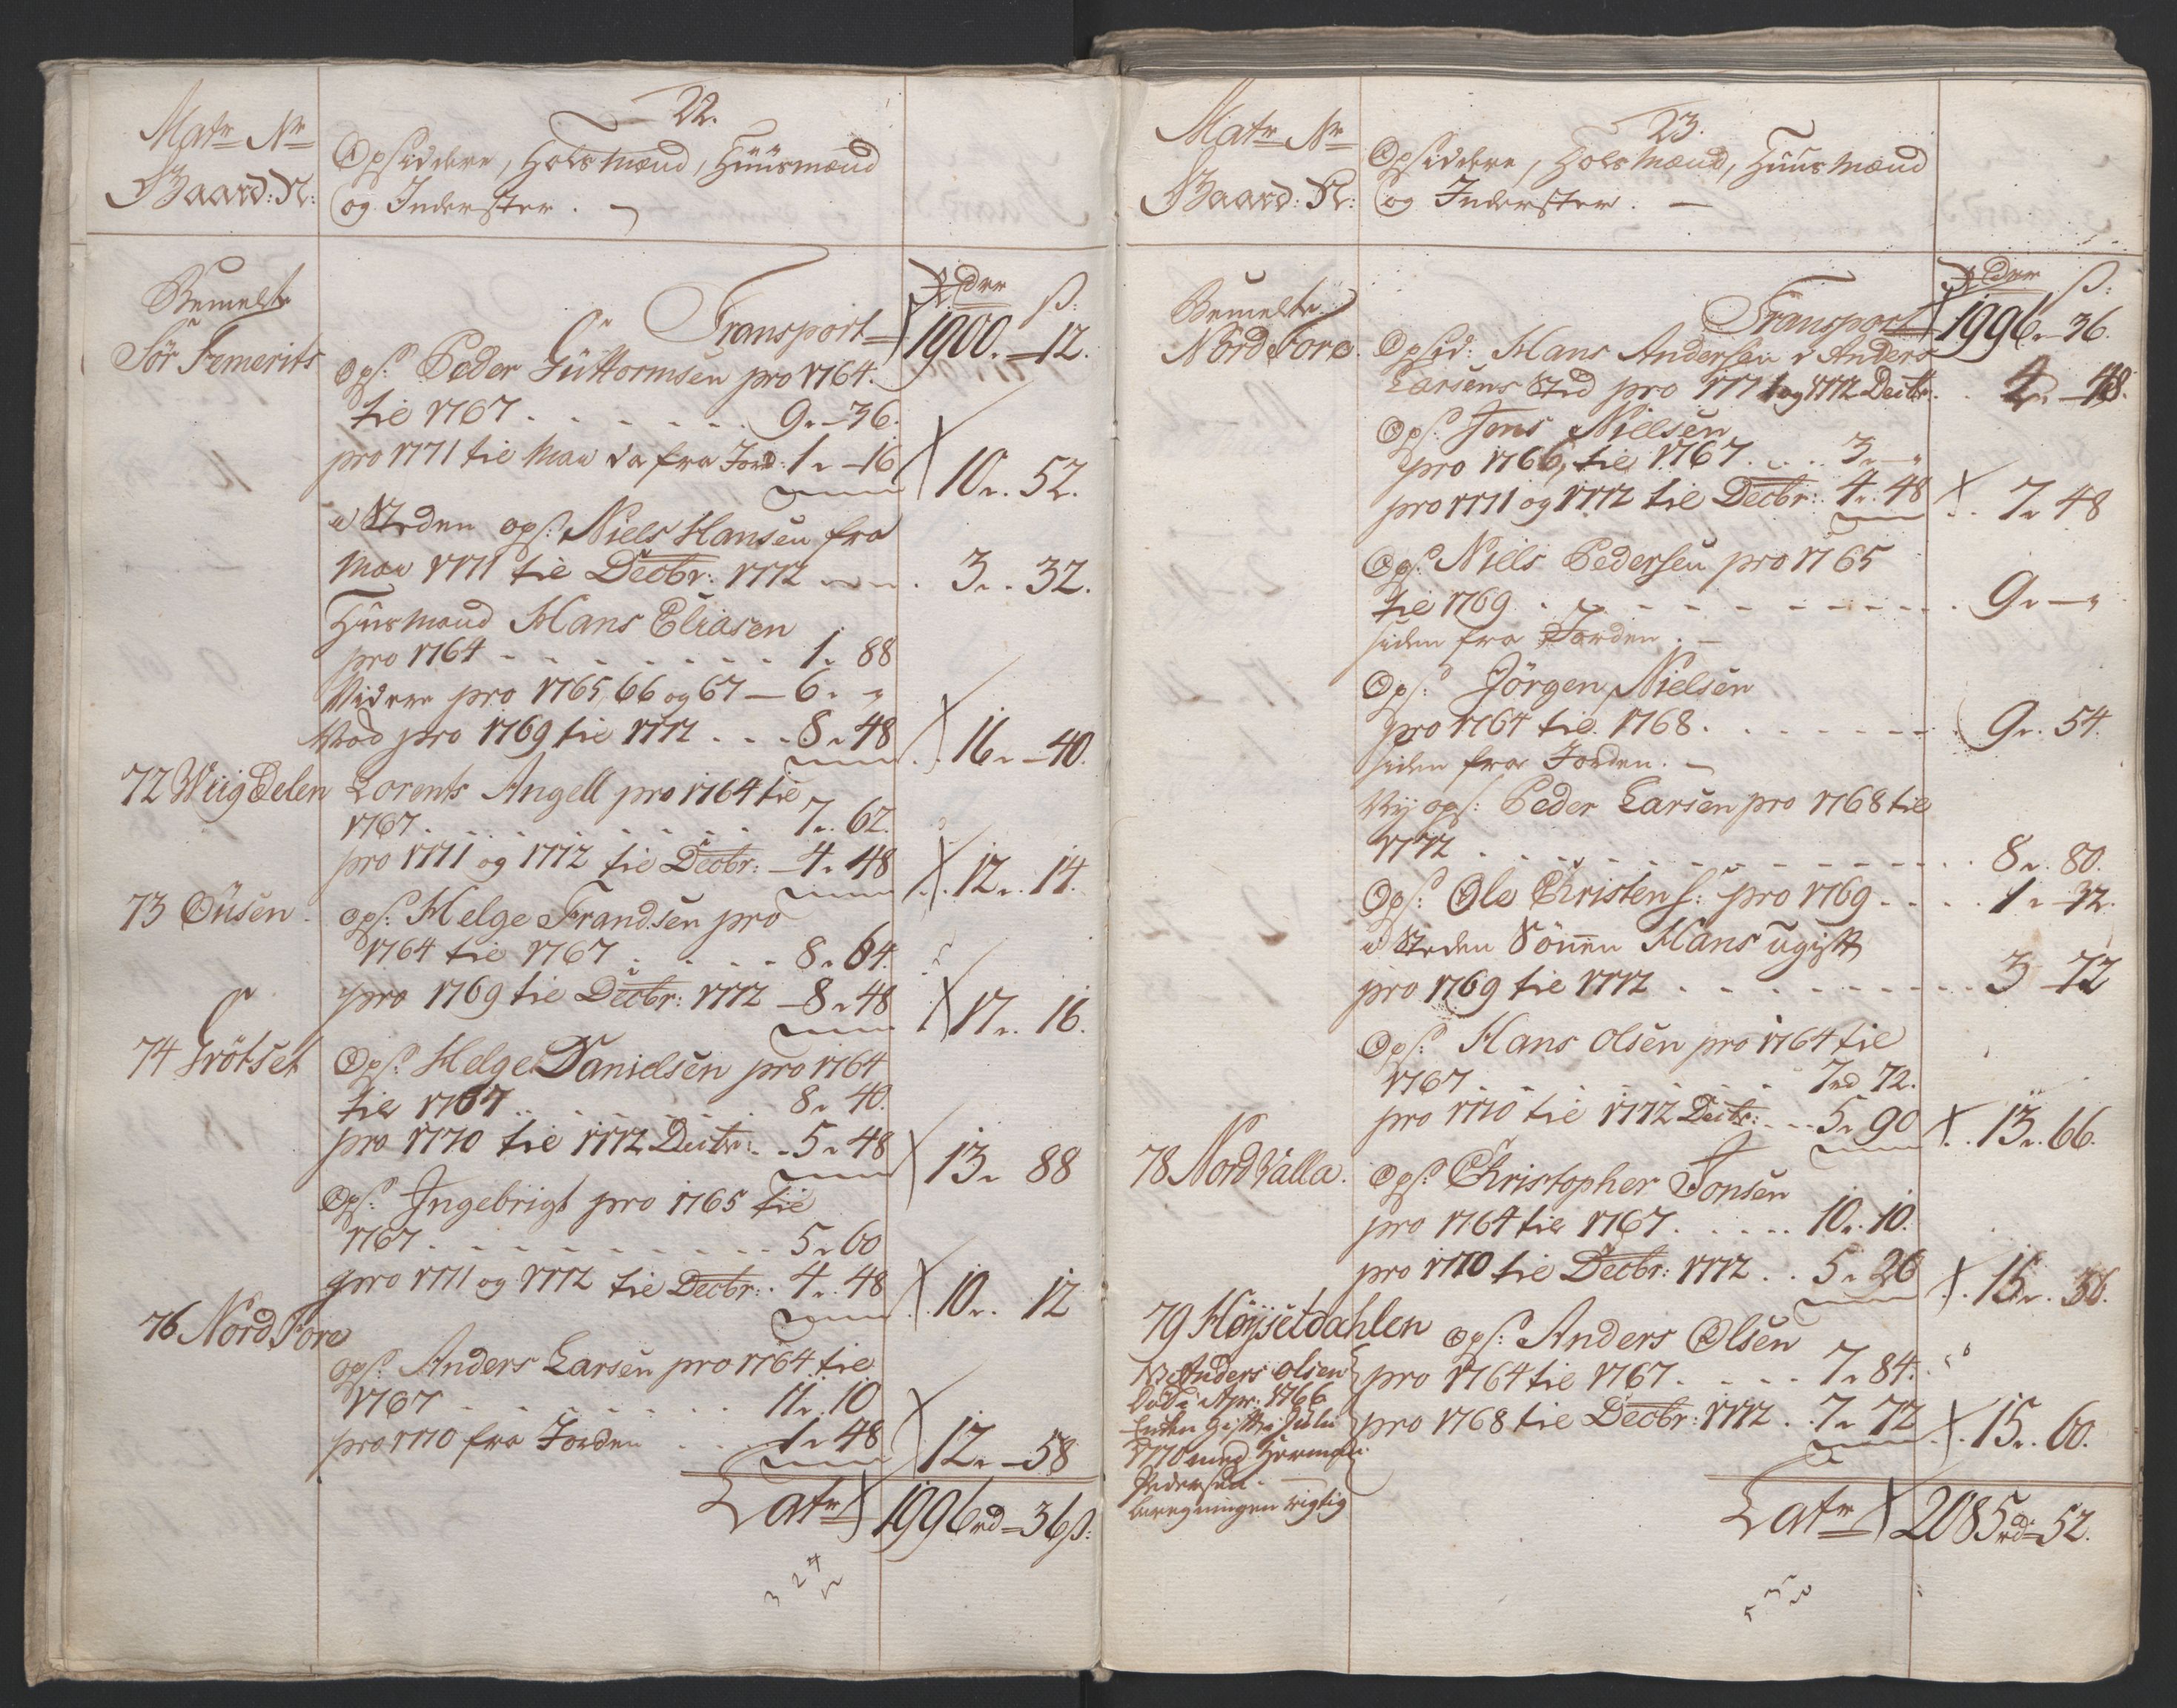 22.
Matr Nr
Gaard: N:
Opsiddere, Holsmænd, Huusmænd
og Inderster. —
Bemelte
Sör Femerits
Rdr ß:
Transport 1900. — 12.
Ops: Peder Guttormsen pro 1764.
til 1767 . . . . . . 9 „ — 36.
pro 1771 til May da fra Jord: 1 „ — 16
10 „ . 52.
i Steden ops: Niels Hansen fra
May 1771 til Decbr: 1772 . 3 „ . 32.
Huusmand Hans Eliasen
pro 1764 - - - - - - - - 1 „ 88
Videre pro 1765, 66 og 67 — 6 „ „
pro 1769 til 1772 . . . 8 „ 48
16 „ — 40.
72 Wiigdelen
Lorents Angell pro 1764 til
1767 . . . . . . . . 7 „ . 62.
pro 1771 og 1772 til Decbr: — 4 „ 48
12 „ . 14.
73 Öusen.
ops: Helge Frandsen pro
1764 til 1767 . . . . 8 „ 64.
pro 1769 til Decbr: 1772 — 8 „ 48
17 „ . 16.
74 Grötset
Ops: Helge Danielsen pro 1764
til 1767 . . . . . . 8 „ 40.
pro 1770 til 1772 Decbr: . . 5 „ 48
13 „ 88
Ops: Ingebrigt pro 1765 til
1767 . . . . . . . . . 5 „ 60
pro 1771 og 1772 til Decbr: . 4 „ . 48
10 „ . 12
76 Nord Fore
ops: Anders Larsen pro 1764 til
1767 . . . . . . . . 11 „ . 10
pro 1770 fra Jorden . . . 1 „ 48
12 „ — 58
Latr 1996 rd = 36 ß:
3 2 4
23.
Matr Nr
Gaard: N:
Opsiddere, Holsmænd, Huusmænd
og Inderster. —
Bemelte
Nord Fore.
Rdr ß:
Transport 1996 „ — 36.
Opsid: Hans Andersen i Anders
Larsens Sted pro 1771 og 1772 Decbr. . 4 „ — 48.
Ops: Jens Nielsen
pro 1766, til 1767 . . . . 3 „ — „
pro 1771 og 1772 til Decbr: . 4 „ . 48
7 „ 48
Ops: Niels Pedersen pro 1765
til 1769 . . . . . . . . . . . . 9 „ — „
siden fra Jorden. —
Ops: Jörgen Nielsen
pro 1764 til 1768 . . . . . . . 9 „ . 54.
siden fra Jorden. —
Ny ops: Peder Larsen pro 1768 til
1772 . . . . . . . . . . . . . . 8 „ . 80.
Ops: Ole Christens: pro 1769 . . . . 1 „ — 32.
i Steden Sönnen Hans ugift
pro 1769 til 1772 . . . . . . . . . . 3 — 72
Ops: Hans Olsen pro 1764 til
1767 . . . . . . . . 7 rd 72.
pro 1770 til 1772 Decbr: . . . 5 „ 90
13 „ . 66.
78 Nord Valla.
Ops: Christopher Jonsen
pro 1764 til 1767 . . . . . . 10 „ . 10.
pro 1770 til Decbr: 1772 . . 5 „ 26
15 „ . 36.
79 Høysetdahlen
ops: Anders Olsen
pro 1764 til 1767 . . . . . 7 „ 84.
pro 1768 til Decbr: 1772 . . 7 „ 72
15 „ . 60.
Anders Olsen
Död i Apr: 1766
Enken Gift i Julii
1770 med
Pedersen
beregningen rigtig
Latr 2085 rd = 52.